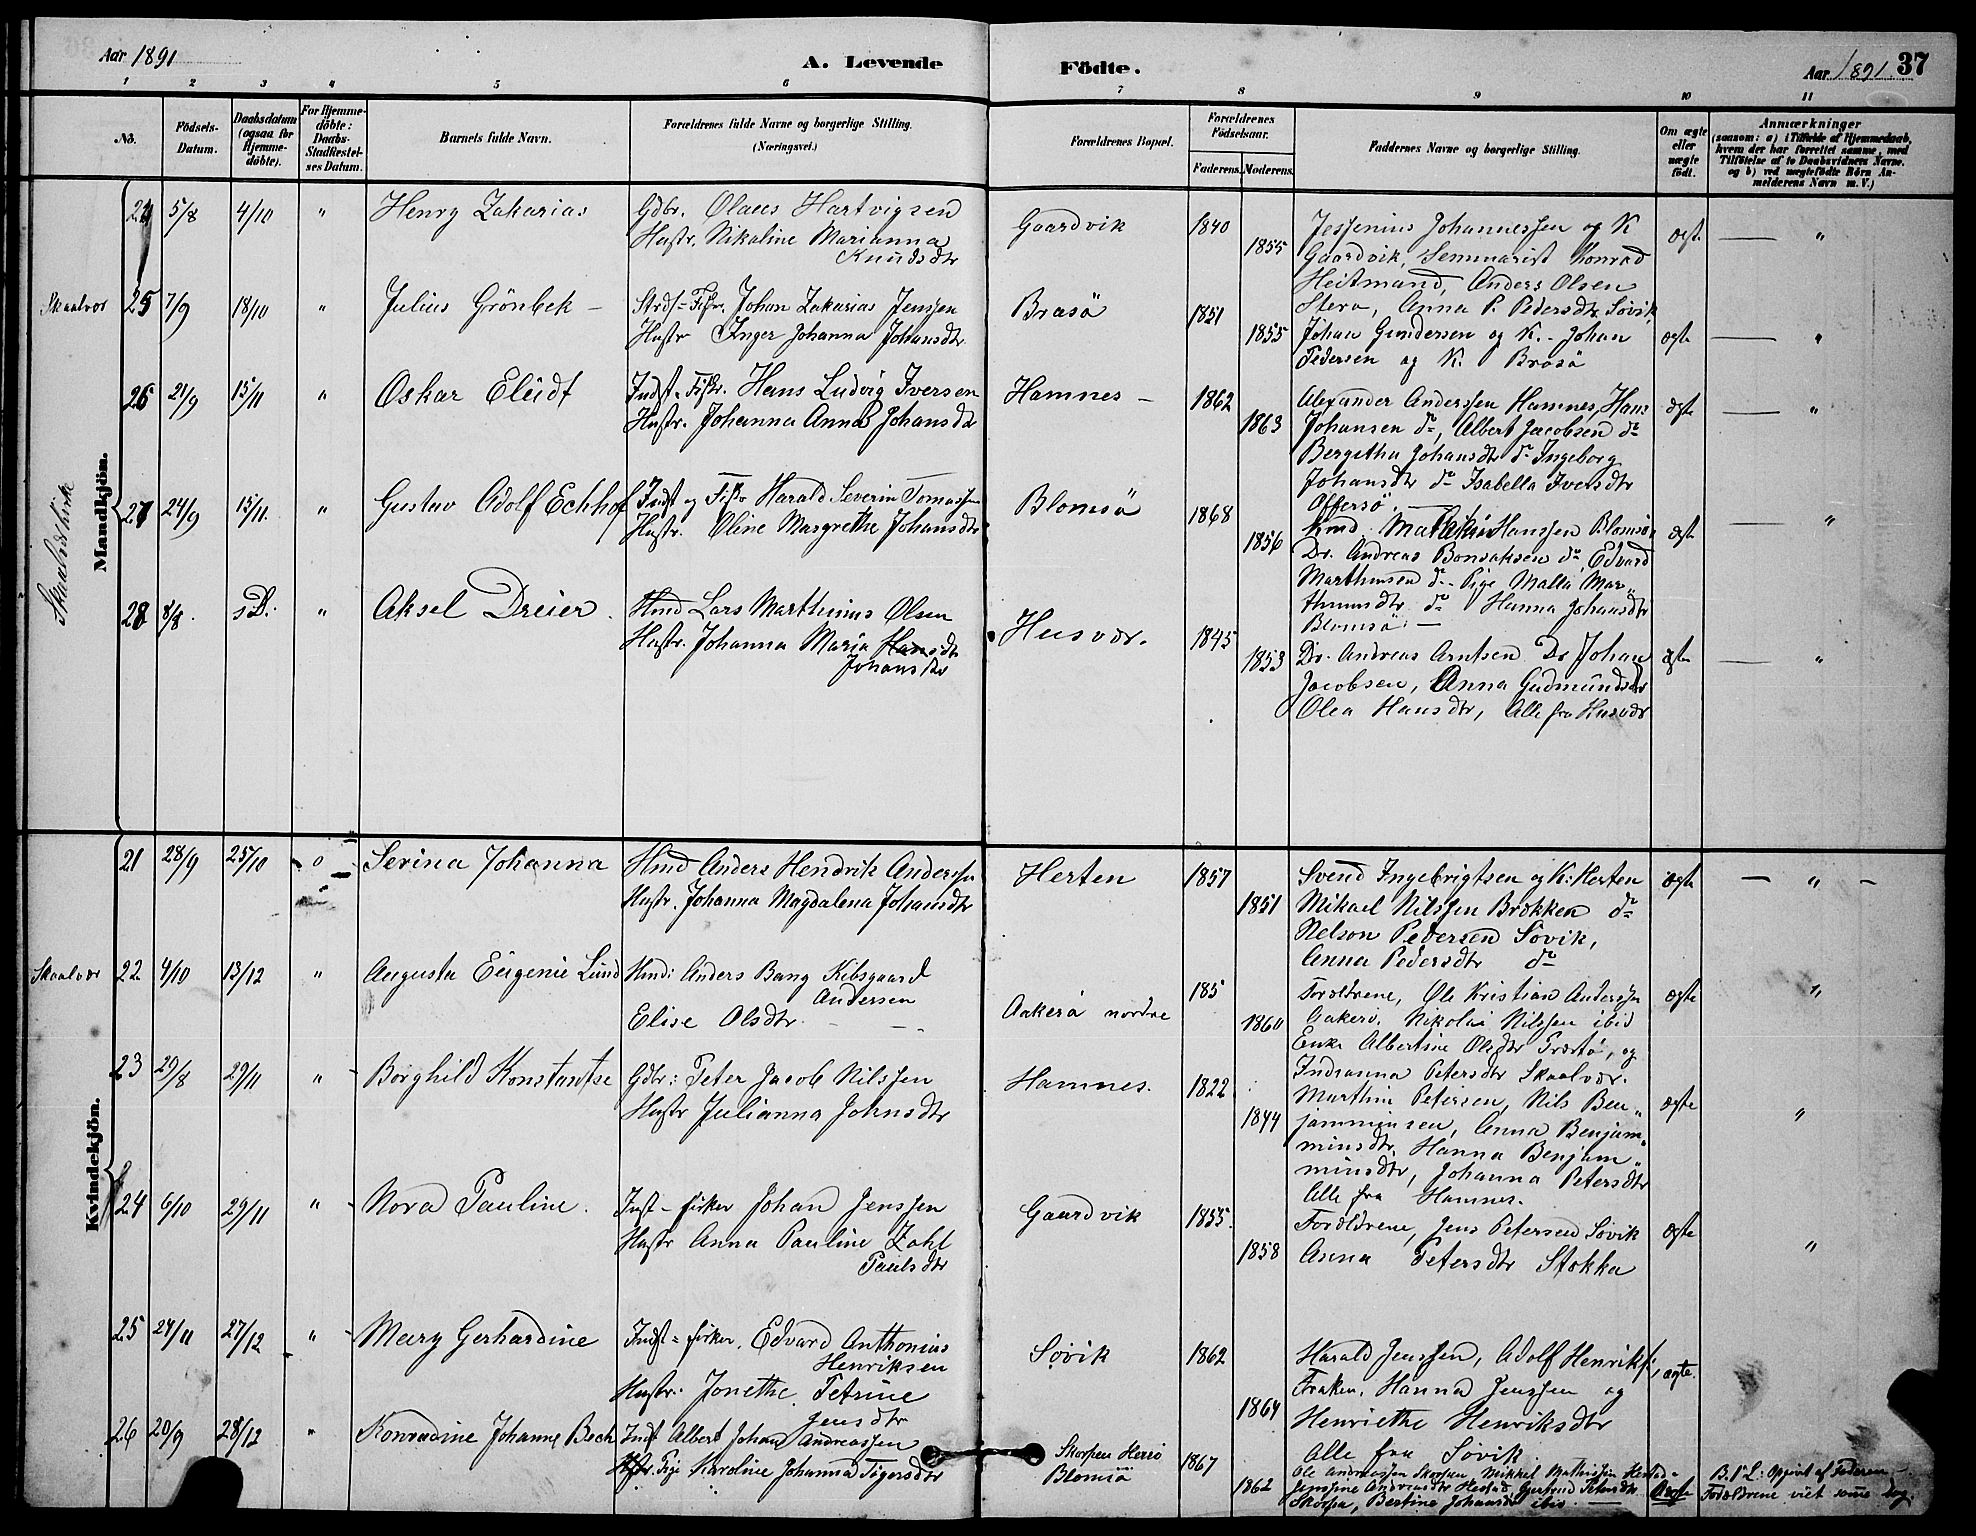 Aar 1891
A. Levende
Födte.
Aar 1891
37
1 2 3 4 5 6 7 8 9 10 11
No.
Födsels-
Datum.
Daabsdatum
(ogsaa for
Hjemme-
döbte).
For Hjemme-
döbte:
Daabs-
Stadfæstel-
ses Datum.
Barnets fulde Navn.
Forældrenes fulde Navne og borgerlige Stilling.
(Næringsvei.)
Forældrenes Bopæl.
Forældrenes
Födselsaar.
Faderens. Moderens.
Faddernes Navne og borgerlige Stilling.
Om ægte
eller
uægte
født.
Anmærkninger
(saasom: a) i Tilfælde af Hjemmedaab,
hvem der har forrettet samme, med
Tilföielse af to Daabsvidners Navne.
og b) ved uægtefödte Börn An-
melderens Navn m. V.)
Mandkjön.
24 5/8 4/10 " Henry Zakarias
Gdbr. Olaus Hartvigsen
Hustr. Nikoline Marianna
Knudsdtr
Gaardvik 1840 1855
Jessenius Johannessen og K
Gaardvik, Seminarist Konrad
Heitmand, Anders Olsen
Stera, Anna P. Pedersdtr Søvik
ægte "
Skaalvær 25 7/9 18/10 " Julius Grönbek -
Strds- Fisk. Johan Zakarias Jenssen
Hustr Inger Johanna Johansdtr
Brasö 1851 1855
Johan Gundersen og K. - Johan
Pedersen og K. Brasö
ægte "
26 21/9 15/11 " Oskar Elidt
Indst - Fisk. Hans Ludvig Iversen
Hustr. Johanna Anna Johansdtr
Hamnes - 1862 1863
Alexander Anderssen Hamnes, Hans
Johansen do, Albert Jacobsen do
Bergitha Johansdtr do Ingeborg
Johansdtr do Isabella Iversdtr
Offersö.
ægte "
27 24/9 15/11. " Gustav Adolf Echhof
Indst og Fisk Harald Severin Tomassen
Hustr. Oline Margrethe Johansdtr
Blomsö 1868 1856
Hmd. Mathias Hanssen Blomsö,
Dr. Andreas Bonsaksen do, Edvard
Marthinsen do - Pige Malla Mar-
thinusdtr do Hanna Johansdtr
Blomsö. -
ægte "
Skaalvær kirke
28 8/8. s.D. " Aksel Dreier.
Hmd Lars Marthinus Olsen
Hustr. Johanna Maria Hansdtr
Johansdtr
Husvær. 1845 1853
Dr. Andreas Arntsen Dr Johan
Jacobsen, Anna Gudmundsdtr
Olea Hansdtr, Alle fra Husvær
ægte "
Kvindekjön.
21 28/9 25/10 Serina Johanna
Hmd Anders Hendrik Andersen
Hustr. Johanna Magdalena Johansdtr
Herten 1857 1851
Svend Ingebrigtsen og K: Herten
Mikael Nilssen Brækken do
Nelson Pedersen Søvik,
Anna Pedersdtr do
ægte "
Skaalvær 22 4/10 13/12 " Augusta Eugenie Lund
Hmd: Anders Bang Kibsgaard
Andersen
Elise Olsdtr.
Aakerø nordre 185 1860
Forældrene, Ole Kristian Anderssen
Aakerø, Nikolai Nilssen ibid
Enke Albertine Olsdtr Trøstö, og
Indianna Petersdtr Skaalvær.
ægte "
23 29/8 29/11 " Borghild Konstantse
Gdbr: Peter Jacob Nilssen
Hustr Julianna Johnsdtr
Hamnes. 1822 1844
Marthin Petersen, Nils Ben-
jaminsen, Anna Benjam-
minsdtr, Hanna Benjam-
minsdtr, Johanna Petersdtr
Alle fra Hamnes.
ægte "
24 6/10 29/11 " Nora Pauline.
Inst - fisker Johan Jenssen
Hustr Anna Pauline Zahl
Paulsdtr
Gaardvik 1855. 1858
Forældrene, Jens Petersen Søvik
Anna Petersdtr Stokka
ægte "
25 24/11 27/12 " Mary Gerhardine
Indst - fisker. Edvard Anthonius
Henriksen
Hustr. Jonethe Petrine
Jensdtr
Søvik 1862 1864
Harald Jenssen, Adolf Henriks,
Fraken, Hanna Jenssen og
Henriethe Henriksdtr
Alle fra Søvik
ægte.
26 20/9 28/12 " Konradine Johanne Bech
Indst Albert Johan Andreassen
Pige Karoline Johanna Pigersdtr
Skorpen Herrö
Blomsö 1867 1862
Ole Andreassen Skorpen, Mikkel Mathissen Hestad
Jenssine Andreasdtr Hestad, Gjertrud Petersdtr
Skorpen, Bertine Johansdtr ibid.
Uægte
B. 1ste L: Opgivet af Faderen -
Forældrene viet samme Dag.